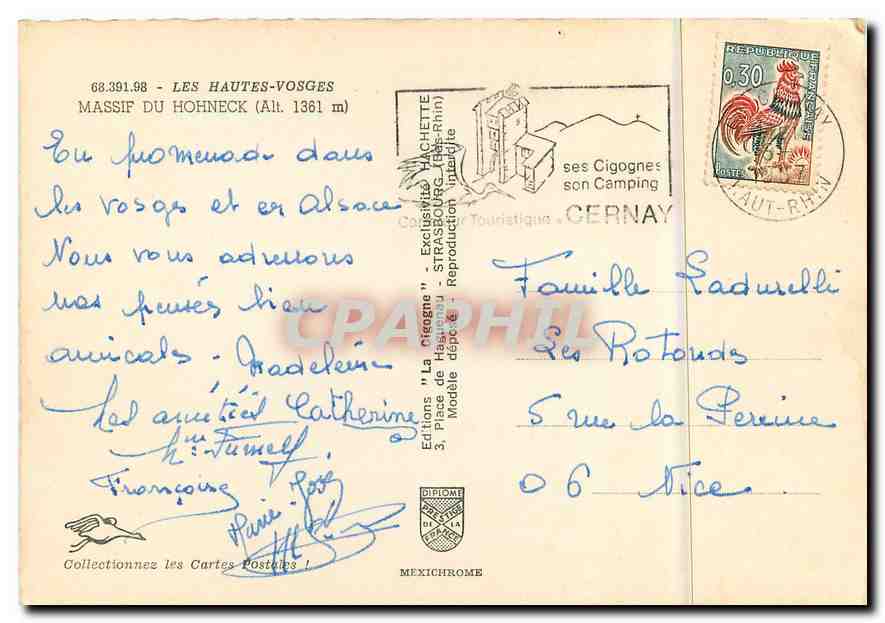 68.391.98 - LES HAUTES-VOSGES
MASSIF DU HOHNECK (Alt. 1361 m)
En promenade dans
les vosges et en Alsace
Nous vous adressons
nos pensées bien
amicales - Madeleine
Les amitiés Catherine
Françoise
Marie-José
Collectionnez les Cartes Postales !
Editions "La Cigogne" - Exclusivité HACHETTE
3, Place de Haguenau - STRASBOURG (Bas-Rhin)
Modèle déposé - Reproduction interdite
DIPLOME
PRESTIGE
DE LA
FRANCE
MEXICHROME
ses Cigognes
son Camping
Touristique
CERNAY
REPUBLIQUE FRANÇAISE
0,30
POSTES
HAUT-RHIN
Famille
Les Rotondes
5 rue la Pereine
06 Nice
CPAPHIL